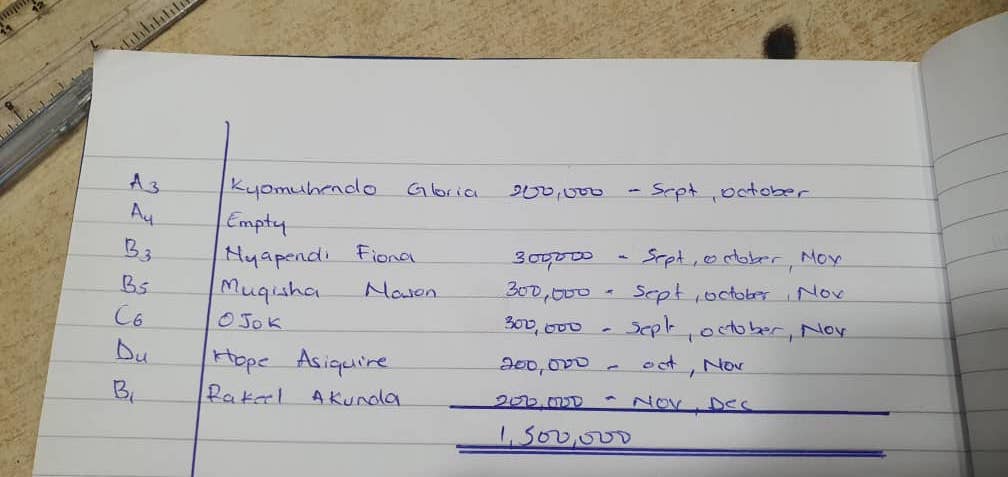 A3 Kyomuhendo Gloria 200,000 - Sept, october
A4 Empty
B3 Nyapendi Fiona 300,000 - Sept, october, Nov
B5 Mugisha Mason 300,000 - Sept, october, Nov
C6 OJOK 300,000 - Sept, october, Nov
D4 Hope Asiquire 200,000 - oct, Nov
B1 Rakeel Akunda 200,000 - Nov, Dec
1,500,000